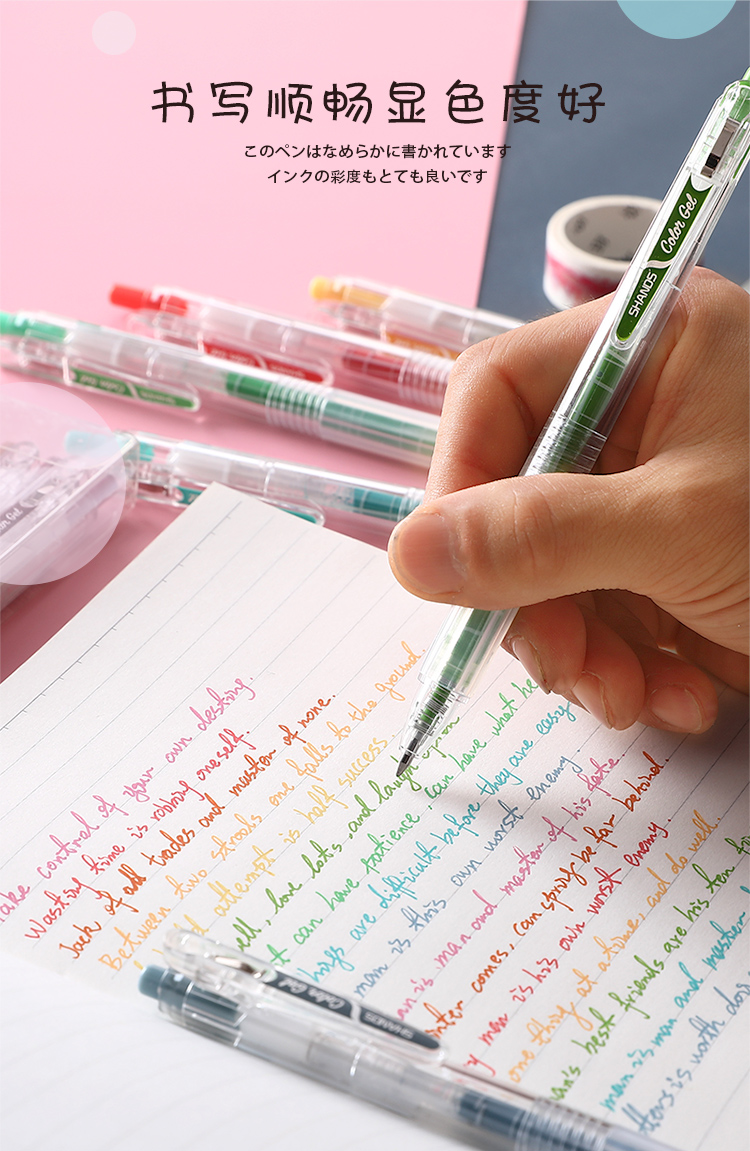 书写顺畅显色度好
このペンはなめらかに書かれています
インクの彩度もとても良いです
Color Gel
SHANDS
take control of your own destiny.
Wasting time is robing oneself.
Jack of all trades and master of none.
Between two strools one falls to the ground.
attempt is half success.
well, love lots, and laugh often
it can have patience, can have what he
things are difficult before they are easy
man is this own worst enemy.
man is man and master of his fate
winter comes, can spring be far behind.
man is his own worst enemy.
one thing at a time, and do well.
man's best friends are his ten fin
man is man and master
Color Gel
SHANDS